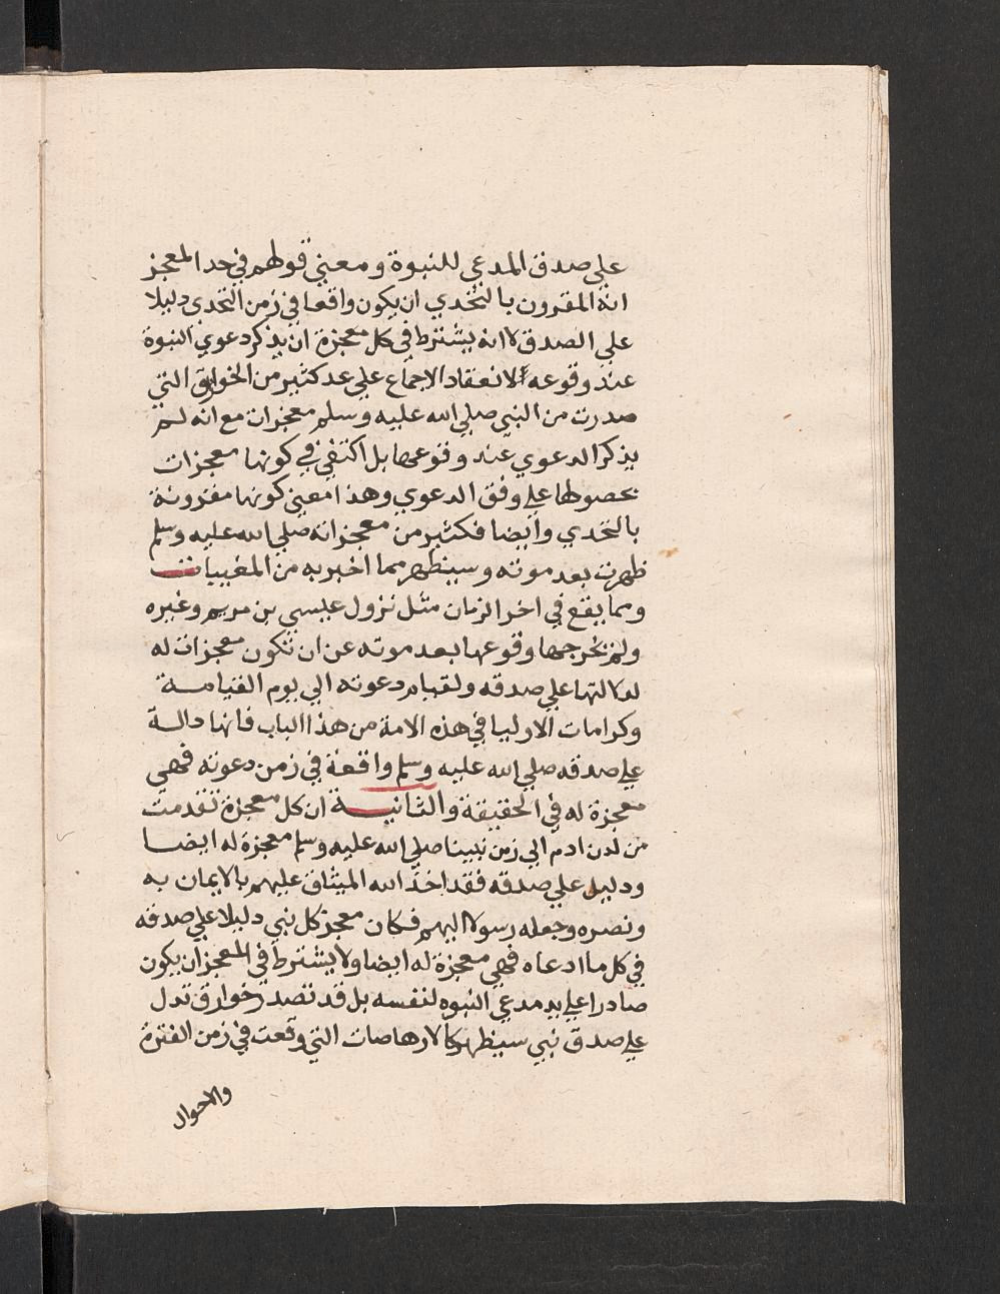 علي صدق المدعي للنبوة ومعني قولهم في حد المعجز
انه المقرون بالتحدي ان يكون واقعا في زمن التحدي دليلا
علي الصدق لا انه يشترط في كل معجزة ان يذكر دعوي النبوة
عند وقوعه لانعقاد الاجماع علي عد كثير من الخوارق التي
صدرت من النبي صلي الله عليه وسلم معجزات مع انه لم
يذكر الدعوي عند وقوعها بل اكتفي في كونها معجزات
بحصولها علي وفق الدعوي وهذا معني كونها مقرونة
بالتحدي وايضا فكثير من معجزاته صلي الله عليه وسلم
ظهرت بعد موته وسيظهر مما اخبر به من المغيبات
ومما يقع في اخر الزمان مثل نزول عيسي بن مريم وغيره
ولم يخرجها وقوعها بعد موته عن ان تكون معجزات له
لدلالتها علي صدقه ولقيام دعوته الي يوم القيامة
وكرامات الاوليا في هذه الامة من هذا الباب فانها دالة
علي صدقه صلي الله عليه وسلم واقعة في زمن دعوته فهي
معجزة له في الحقيقة والثانية ان كل معجزة تقدمت
من لدن ادم الي زمن نبينا صلي الله عليه وسلم معجزة له ايضا
ودليل علي صدقه فقد اخذ الله الميثاق عليهم بالايمان به
ونصره وجعله رسولا اليهم فكان معجز كل نبي دليلا علي صدقه
في كل ما ادعاه فهي معجزة له ايضا ولا يشترط في المعجز ان يكون
صادرا علي يد مدعي النبوه لنفسه بل قد تصدر خوارق تدل
علي صدق نبي سيظهر كالارهاصات التي وقعت في زمن الفترة
والاحوال